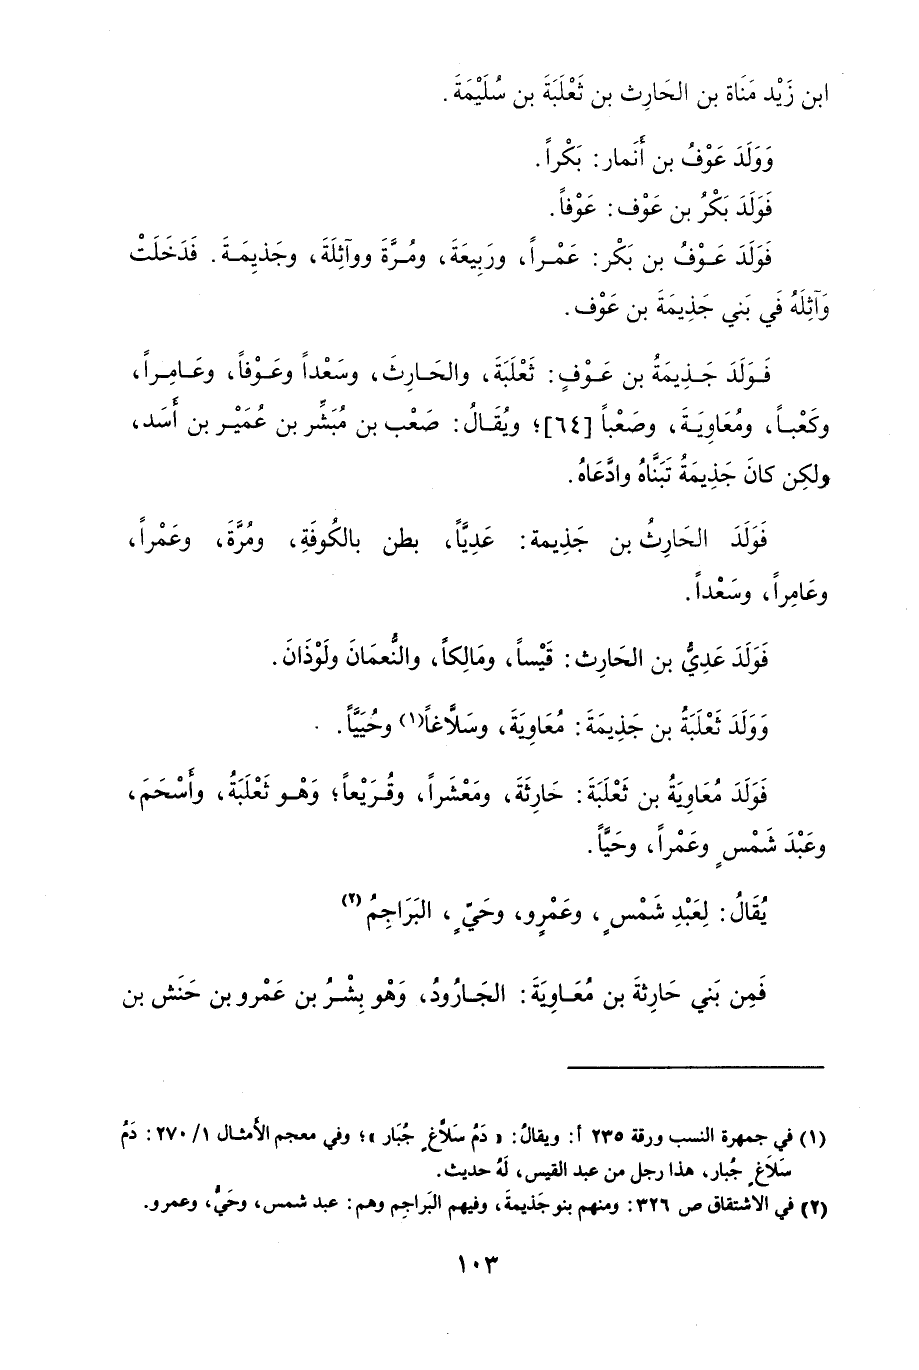 ابن زَيْد مَنَاة بن الحَارِث بن ثَعْلَبَة بن سُلَيْمَةَ .
وَوَلَدَ عَوْفُ بن أَنَمار : بَكْراً .
فَوَلَدَ بَكْرُ بن عَوْف : عَوْفاً .
فَوَلَدَ عَوْفُ بن بَكْر : عَمْراً ، ورَبِيعَةَ ، ومُرَّةَ ووآثِلَةَ ، وجَذِيمَةَ . فَدَخَلَتْ
وَآثِلَهُ في بَني جَذِيمَةَ بن عَوْف .
فَوَلَدَ جَذِيمَةُ بن عَوْفٍ : ثَعْلَبَةَ ، والحَارِثَ ، وسَعْداً وعَوْفاً ، وعَامِراً ،
وكَعْباً ، ومُعَاوِيَةَ ، وصَعْباً [٦٤] ؛ ويُقَالُ : صَعْب بن مُبَشِّر بن عُمَيْر بن أَسَد ،
ولكِن كانَ جَذِيمَةُ تَبَنَّاهُ وادَّعَاهُ .
فَوَلَدَ الحَارِثُ بن جَذِيمة : عَدِيَّاً ، بطن بالكُوفَةِ ، ومُرَّةَ ، وعَمْراً ،
وعَامِراً ، وسَعْداً .
فَوَلَدَ عَدِيُّ بن الحَارِث : قَيْساً ، ومَالِكاً ، والنُّعمَانَ ولَوْذَانَ .
وَوَلَدَ ثَعْلَبَةُ بن جَذِيمَةَ : مُعَاوِيَةَ ، وسَلاَّغاً(١) وحُيَيَّاً .
فَوَلَدَ مُعَاوِيَةُ بن ثَعْلَبَةَ : حَارِثَةَ ، ومَعْشَراً ، وقُرَيْعاً ؛ وَهْو ثَعْلَبَةُ ، وأَسْحَمَ ،
وعَبْدَ شَمْسٍ وعَمْراً ، وحَيَّاً .
يُقَالُ : لِعَبْدِ شَمْسٍ ، وعَمْرٍو ، وحَيّ ٍ ، البَرَاجِمُ (٢)
فَمِن بَني حَارِثةَ بن مُعَاوِيَةَ : الجَارُودُ ، وَهْو بِشْرُ بن عَمْرو بن حَنَش بن
(١) في جمهرة النسب ورقة ٢٣٥ أ : ويقالُ : « دَمُ سَلاَّغٍ جُبَار » ؛ وفي معجم الأمثال ١ / ٢٧٠ : دَمُ
سَلاَغٍ جُبار ، هذا رجل من عبد القيس ، لَهُ حديث .
(٢) في الاشتقاق ص ٣٢٦ : ومنهم بنو جَذيمةَ ، وفيهم البَراجم وهم : عبد شمس ، وحَيُّ ، وعمرو .
١٠٣